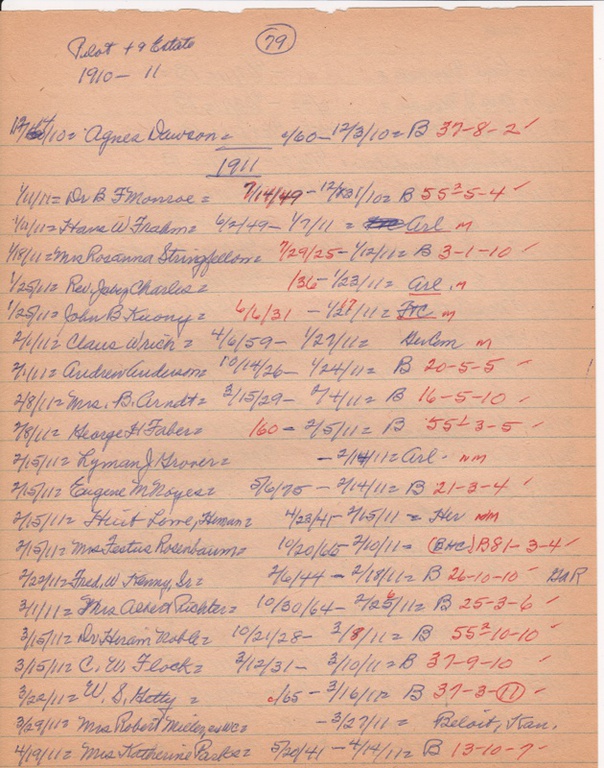 Pilot + 9 Estate (79)
1910 - 11
12/ /10 = Agnes Dawson = c/60 - 12/3/10 = B 37-8-2 ✓
1911
1/11/11 = Dr B F Monroe = 7/14/49 - 12/31/10 = B 55²-5-4 ✓
1/11/11 = Hans W Frahm = 6/2/49 - 1/7/11 = Arl m
1/18/11 = Mrs Rosanna Stringfellow = 7/29/25 - 1/12/11 = B 3-1-10 ✓
1/25/11 = Rev. Charles = 1/36 - 1/23/11 = Arl. m
1/25/11 = John B = 6/6/31 - 1/ /11 = m
2/1/11 = Claus Wrich = 4/6/59 - 1/27/11 = m
2/1/11 = Andrew Anderson = 10/14/26 - 1/24/11 = B 20-5-5 ✓ !
2/8/11 = Mrs. B. Arndt = 3/15/29 - 2/4/11 = B 16-5-10 ✓
2/8/11 = George H Faber = 1/60 = 2/5/11 = B 55¹-3-5 ✓
2/15/11 = Lyman J Grover = - 2/ /11 = Arl. nm
2/15/11 = Eugene M Noyes = 5/6/75 - 2/14/11 = B 21-3-4 ✓
2/15/11 = Lowe, = 4/23/41 - 2/15/11 = nm
2/15/11 = Mrs Festus Rosenbaum = 10/20/65 2/10/11 = (BHC) B81-3-4 ✓
2/22/11 = Fred. W Kenny, Sr = 2/6/44 - 2/18/11 = B 26-10-10 ✓ GAR
3/1/11 = Mrs Albert Richter = 10/30/64 - 2/ /11 = B 25-3-6 ✓
3/15/11 = Dr Hiram Noble = 10/21/28 - 3/8/11 = B 55²-10-10 ✓
3/15/11 = C. W. Flock = 3/12/31 - 3/10/11 = B 37-9-10 ✓
3/22/11 = W. S. Getty = c/65 - 3/16/11 = B 37-3-(11) ✓
3/29/11 = Mrs Robert - 3/27/11 = Beloit, Kan.
4/19/11 = Mrs Katherine Parks = 5/20/41 - 4/14/11 = B 13-10-7 ✓